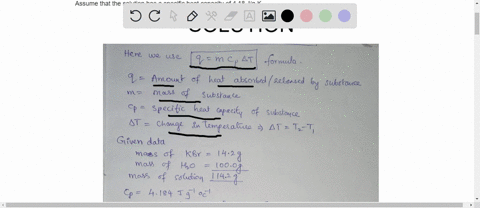 Assume that the solution has a specific heat capacity of 4.18
SOLUTION
Here we use q = m Cp ΔT formula.
q = Amount of heat absorbed/released by substance
m = mass of substance
Cp = specific heat capacity of substance
ΔT = Change in temperature ⇒ ΔT = T₂-T₁
Given data
mass of KBr = 14.2g
mass of H₂O = 100.0g
mass of solution 114.2g
Cp = 4.184 J g⁻¹ °C⁻¹